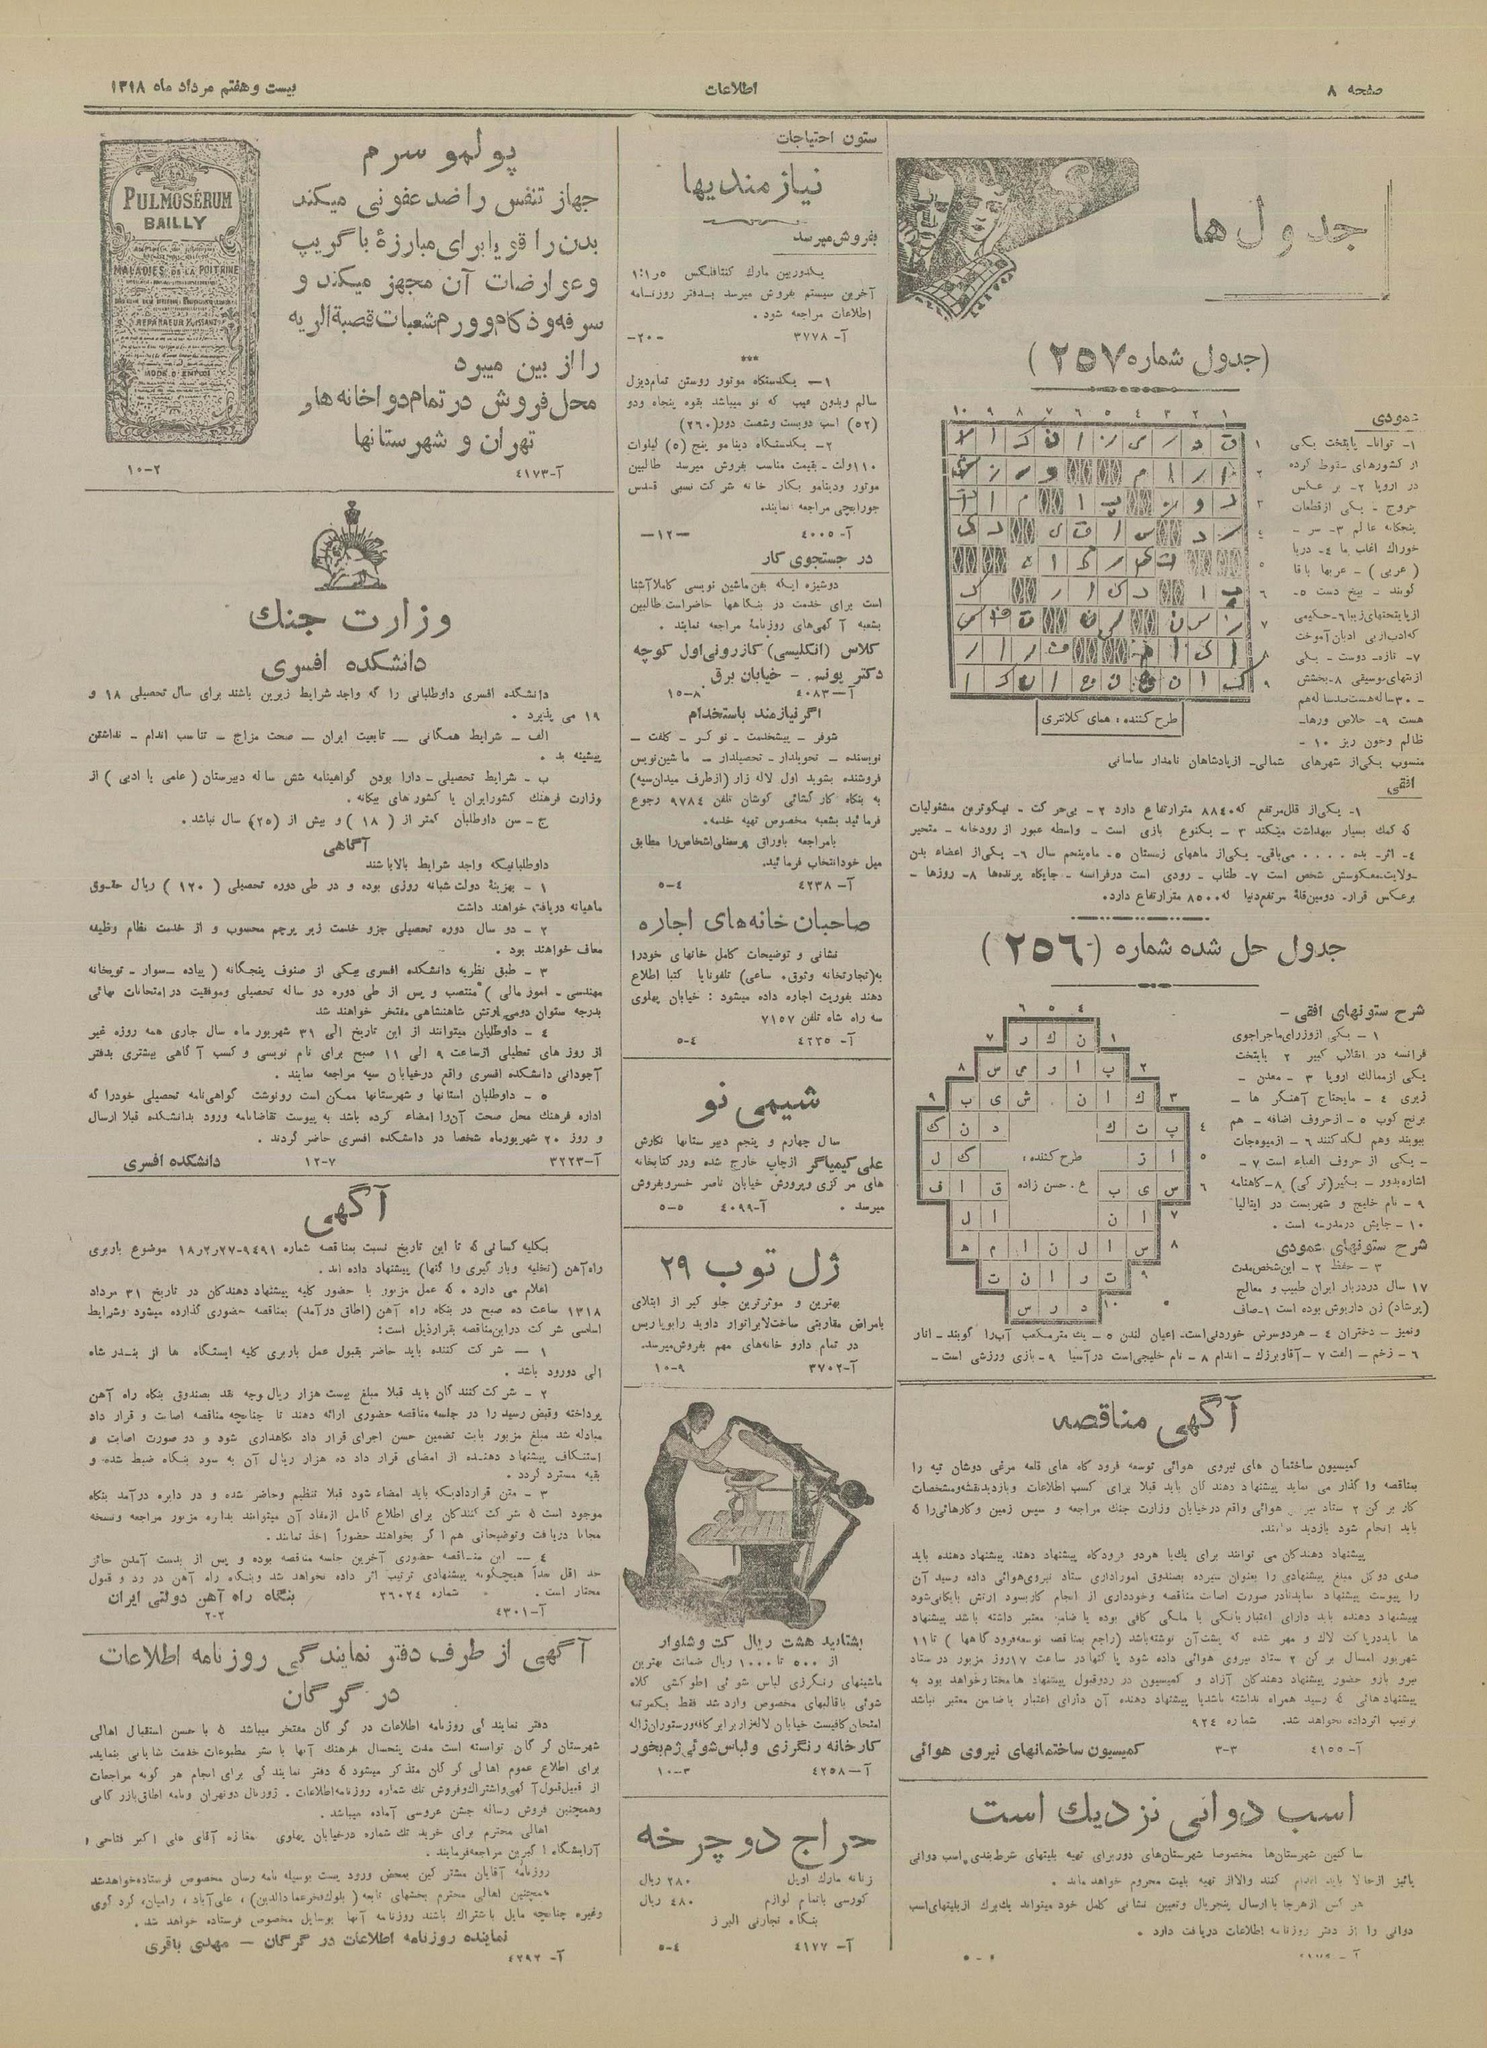 صفحه ۸
اطلاعات
بیست و هفتم مرداد ماه ۱۳۱۸
جدول ها
(جدول شماره ۲۵۷)
عمودی
۱- توانا- پایتخت یکی
از کشورهای سقوط کرده
در اروپا ۲- بر عکس
خروج - یکی از قطعات
پنجگانه عالم ۳- سر -
خوراک اغلب ما ٤- دریا
(عربی) - عربها باقا
گویند - بیخ دست ۵-
ازپایتختهای زیبا ۶- حکیمی
که ادب از بی ادبان آموخت
۷- تازه- دوست - یکی
ازنتهای موسیقی ۸- بخشش
- ۳۰ساله هست صدساله هم
هست ۹- خلاص ورها-
ظالم وخون ریز ۱۰ -
منسوب بیکی از شهرهای شمالی- ازپادشاهان نامدار ساسانی
طرح کننده : همای کلانتری
افقی
۱- یکی از قلل مرتفع که ۸۸٤۰ متر ارتفاع دارد ۲ - بی حرکت - نیکوترین مشغولیات
که کمک بسیار ببهداشت میکند ۳ - یکنوع بازی است - واسطه عبور از رودخانه - متحیر
٤- اثر- بده .... می باقی- یکی از ماههای زمستان ۵- ماه پنجم سال ۶- یکی از اعضاء بدن
-ولایت- معکوسش شخص است ۷- طناب - رودی است در فرانسه - جایگاه پرنده ها ۸- روزها -
بر عکس قرار- دومین قلهٔ مرتفع دنیا که ۸۵۰۰ متر ارتفاع دارد.
جدول حل شده شماره (۲۵۶)
شرح ستونهای افقی -
۱ - یکی ازوزرای ماجراجوی
فرانسه در انقلاب کبیر ۲ پایتخت
یکی ازممالک اروپا ۳ - معدن -
زیری ٤ - مایحتاج آهنگر ها -
برنج کوب ۵ - ازحروف اضافه - هم
ببویند وهم لگد کنند ۶ - ازمیوه جات
- یکی از حروف الفباء است ۷ -
اشاره بدور - بگیر(ترکی) ۸- کاهنامه
۹ - نام خلیج و شهریست در ایتالیا
۱۰ - جایش درمدرسه است .
طرح کننده :
ع . حسن زاده
شرح ستونهای عمودی
۳ - حفظ ۲ - این شخص مدت
۱۷ سال دردربار ایران طبیب و معالج
(پرشاد) زن داریوش بوده است ۱-صاف
وتمیز - دختران ٤ - هردوسرش خوردنی است- اعیان لندن ۵ - یک مترمکعب آب را گویند - انار
۶ - زخم - الفت ۷ - آقاوبزرگ - اندام ۸ - نام خلیجی است درآسیا ۹ - بازی ورزشی است -
آگهی مناقصه
کمیسیون ساختمان های نیروی هوائی توسعه فرود گاه های قلعه مرغی دوشان تپه را
بمناقصه وا گذار می نماید پیشنهاد دهند گان باید قبلا برای کسب اطلاعات وبازدیدنقشه ومشخصات
کار بر کن ۲ ستاد نیروی هوائی واقع درخیابان وزارت جنگ مراجعه و سپس زمین وکارهائی را که
باید انجام شود بازدید نمایند.
پیشنهاد دهندگان می توانند برای یک یا هردو فرودگاه پیشنهاد دهند. پیشنهاد دهنده باید
صدی دو کل مبلغ پیشنهادی را بعنوان سپرده بصندوق اموراداری ستاد نیروی هوائی داده رسید آن
را پیوست پیشنهاد نمایدتادر صورت اصابت مناقصه وخودداری از انجام کاربسود ارتش بایگانی شود
پیشنهاد دهنده باید دارای اعتبار بانکی یا ملکی کافی بوده یا ضامن معتبر داشته باشد پیشنهاد
ها بایددرپاکت لاک و مهر شده که پشت آن نوشته باشد (راجع بمناقصه توسعه فرودگاهها) تا ۱۱
شهریور امسال بر کن ۲ ستاد نیروی هوائی داده شود پاکتها در ساعت ۱۷ روز مزبور در ستاد
نیرو بازو حضور پیشنهاد دهندگان آزاد و کمیسیون در ردوقبول پیشنهاد ها مختارخواهد بود به
پیشنهادهائی که رسید همراه نداشته باشدیا پیشنهاد دهنده آن دارای اعتبار یاضامن معتبر نباشد
ترتیب اثرداده نخواهد شد. شماره ۹۲٤
آ- ٤۱۵۵ ۳-۳ کمیسیون ساختمانهای نیروی هوائی
اسب دوانی نزدیک است
ساکنین شهرستان ها مخصوصا شهرستان های دوربرای تهیه بلیتهای شرط بندی اسب دوانی
پائیز ازحالا باید اقدام کنند والااز تهیه بلیت محروم خواهدماند .
هر کس ازهرجا با ارسال پنجریال وتعیین نشانی کامل خود میتواند یک برگ ازبلیتهای اسب
دوانی را از دفتر روزنامه اطلاعات دریافت دارد .
ستون احتیاجات
نیازمندیها
بفروش میرسد
یکدوربین مارک کنتافلکس ۱:۱ر۵
آخرین سیستم بفروش میرسد بدفتر روزنامه
اطلاعات مراجعه شود .
آ- ۳۷۷۸ -۲۰-
***
۱- یکدستگاه موتور روستن تمام دیزل
سالم وبدون عیب که نو میباشد بقوه پنجاه ودو
(۵۲) اسب دویست وشصت دور(۲۶۰)
۲- یکدستگاه دینامو پنج (۵) کیلوات
۱۱۰ولت - بقیمت مناسب بفروش میرسد طالبین
موتور ودینامو بکار خانه شرکت نسبی قدس
جورابچی مراجعه نمایند.
آ- ٤۰۰۵ -۱۲-
در جستجوی کار
دوشیزه ایکه بفن ماشین نویسی کاملا آشنا
است برای خدمت در بنگاهها حاضراست طالبین
بشعبه آ گهی های روزنامه مراجعه نمایند .
کلاس (انگلیسی) کازرونی اول کوچه
دکتر یونس - خیابان برق .
آ- ٤۰۸۳ ۸-۱۵
اگر نیازمند باستخدام
شوفر - پیشخدمت - نوکر - کلفت -
نویسنده - تحویلدار - تحصیلدار - ماشین نویس
فروشنده بشوید اول لاله زار (ازطرف میدان سپه)
به بنگاه کار گشائی کوشان تلفن ۹۷۸٤ رجوع
فرمائید بشعبه مخصوص تهیه خدمه.
بامراجعه باوراق پرسشی اشخاص را مطابق
میل خودانتخاب فرمائید.
آ- ٤۲۳۸ ٤-۵
صاحبان خانه های اجاره
نشانی و توضیحات کامل خانهای خودرا
به(تجارتخانه وثوق- ساعی) تلفونایا کتبا اطلاع
دهند بفوریت اجاره داده میشود : خیابان پهلوی
سه راه شاه تلفن ۷۱۵۷
آ- ٤۲۳۵ ٤-۵
شیمی نو
سال چهارم و پنجم دبیرستانها نگارش
علی کیمیاگر ازچاپ خارج شده ودر کتابخانه
های مرکزی وپرورش خیابان ناصر خسروبفروش
میرسد . آ-٤۰۹۹ ۵-۵
ژل توب ۲۹
بهترین و موثرترین جلو گیر از ابتلای
بامراض مقاربتی ساخت لابراتوار داوید رابوپاریس
در تمام دارو خانه های مهم بفروش میرسد.
آ-۳۷۰۲ ۹-۱۰
بشتابید هشت ریال کت و شلوار
از ۵۰۰ تا ۱۰۰۰ ریال ضمانت بهترین
ماشینهای رنگرزی لباس شوئی اطوکشی کلاه
شوئی باقالبهای مخصوص وارد شد فقط یکمرتبه
امتحان کافیست خیابان لاله زار برابر کافه ورستوران ژاله
کارخانه رنگرزی ولباس شوئی ژم بخور
آ- ٤۲۵۸ ۳-۱۰
حراج دوچرخه
زنانه مارک اوپل ۲۸۰ ریال
کورسی باتمام لوازم ٤۸۰ ریال
بنگاه تجارتی البرز
آ- ٤۱۷۷ ٤-۵
PULMOSÉRUM
BAILLY
MALADIES DE LA POITRINE
RÉPARATEUR PUISSANT
MODE D'EMPLOI
پولمو سرم
جهاز تنفس را ضد عفونی میکند
بدن را قویا برای مبارزهٔ با گریپ
و عوارضات آن مجهز میکند و
سرفه و ذکام و ورم شعبات قصبة الریه
را از بین میبرد
محل فروش در تمام دواخانه های
تهران و شهرستانها
آ-٤۱۷۳ ۲-۱۰
وزارت جنگ
دانشکده افسری
دانشکده افسری داوطلبانی را که واجد شرایط زیرین باشند برای سال تحصیلی ۱۸ و
۱۹ می پذیرد .
الف - شرایط همگانی - تابعیت ایران - صحت مزاج - تناسب اندام - نداشتن
پیشینه بد .
ب - شرایط تحصیلی - دارا بودن گواهینامه شش ساله دبیرستان (علمی یا ادبی) از
وزارت فرهنگ کشورایران یا کشورهای بیگانه .
ج- سن داوطلبان کمتر از (۱۸) و بیش از (۲۵) سال نباشد .
آگاهی
داوطلبانیکه واجد شرایط بالا باشند
۱ - بهزینهٔ دولت شبانه روزی بوده و در طی دوره تحصیلی (۱۲۰) ریال حقوق
ماهیانه دریافت خواهند داشت
۲ - دو سال دوره تحصیلی جزو خدمت زیر پرچم محسوب و از خدمت نظام وظیفه
معاف خواهند بود .
۳ - طبق نظریه دانشکده افسری بیکی از صنوف پنجگانه (پیاده - سوار - توپخانه
مهندسی - امورمالی) منتصب و پس از طی دوره دو ساله تحصیلی وموفقیت درامتحانات نهائی
بدرجه ستوان دومی ارتش شاهنشاهی مفتخر خواهند شد
٤ - داوطلبان میتوانند از این تاریخ الی ۳۱ شهریور ماه سال جاری همه روزه غیر
از روز های تعطیلی ازساعت ۹ الی ۱۱ صبح برای نام نویسی و کسب آگاهی بیشتری بدفتر
آجودانی دانشکده افسری واقع درخیابان سپه مراجعه نمایند .
۵ - داوطلبان استانها و شهرستانها ممکن است رونوشت گواهی نامه تحصیلی خودرا که
اداره فرهنگ محل صحت آن را امضاء کرده باشد به پیوست تقاضانامه ورود بدانشکده قبلا ارسال
و روز ۲۰ شهریورماه شخصا در دانشکده افسری حاضر گردند .
آ-۳۲۲۳ ۷-۱۲ دانشکده افسری
آگهی
بکلیه کسانی که تا این تاریخ نسبت بمناقصه شماره ۹٤۹۱-۲۷ر۲ر۱۸ موضوع باربری
راه آهن (تخلیه وبار گیری وا گنها) پیشنهاد داده اند.
اعلام می دارد . که عمل مزبور با حضور کلیه پیشنهاد دهندگان در تاریخ ۳۱ مرداد
۱۳۱۸ ساعت ده صبح در بنگاه راه آهن (اطاق درآمد) بمناقصه حضوری گذارده میشود وشرایط
اساسی شرکت دراین مناقصه بقرارذیل است:
۱ - شرکت کننده باید حاضر بقبول عمل باربری کلیه ایستگاه ها از بندر شاه
الی دورود باشد .
۲ - شرکت کنندگان باید قبلا مبلغ بیست هزار ریال وجه نقد بصندوق بنگاه راه آهن
پرداخته وقبض رسید را در جلسه مناقصه حضوری ارائه دهند تا چنانچه مناقصه اصابت و قرار داد
مبادله شد مبلغ مزبور بابت تضمین حسن اجرای قرار داد نگاهداری شود و در صورت اصابت و
استنکاف پیشنهاد دهنده از امضای قرار داد ده هزار ریال آن به سود بنگاه ضبط شده و
بقیه مسترد گردد .
۳ - متن قراردادیکه باید امضاء شود قبلا تنظیم وحاضر شده و در دایره درآمد بنگاه
موجود است که شرکت کنندگان برای اطلاع کامل ازمفاد آن میتوانند بداره مزبور مراجعه ونسخه
مجانا دریافت وتوضیحاتی هم اگر بخواهند حضوراً اخذ نمایند .
٤ - این مناقصه حضوری آخرین جلسه مناقصه بوده و پس از بدست آمدن حائز
حد اقل بعداً هیچگونه پیشنهادی ترتیب اثر داده نخواهد شد وبنگاه راه آهن در رد و قبول
مختار است . شماره ۳۶۰۲٤ بنگاه راه آهن دولتی ایران
آ-٤۳۰۱ ۲-۲
آگهی از طرف دفتر نمایندگی روزنامه اطلاعات
در گرگان
دفتر نمایندگی روزنامه اطلاعات در گرگان مفتخر میباشد که با حسن استقبال اهالی
شهرستان گرگان توانسته است مدت پنجسال بفرهنگ آنها با نشر مطبوعات خدمت شایانی بنماید.
برای اطلاع عموم اهالی گرگان متذکر میشود که دفتر نمایندگی برای انجام هر گونه مراجعات
از قبیل قبول آگهی واشتراک وفروش تک شماره روزنامه اطلاعات . ژورنال دوتهران ونامه اطاق بازرگانی
وهمچنین فروش رساله جشن عروسی آماده میباشد .
اهالی محترم برای خرید تک شماره درخیابان پهلوی مغازه آقای علی اکبر فتاحی و
آرایشگاه مراجعه فرمایند .
روزنامه آقایان مشترکین بمحض ورود پست بوسیله نامه رسان مخصوص فرستاده خواهدشد
همچنین اهالی محترم بخشهای تابعه (بلوک فخرعمادالدین) ، علی آباد ، رامیان، کرد کوی
وغیره چنانچه مایل باشتراک باشند روزنامه آنها بوسایل مخصوص فرستاده خواهد شد .
نماینده روزنامه اطلاعات در گرگان - مهدی باقری
آ- ٤۲۹۲